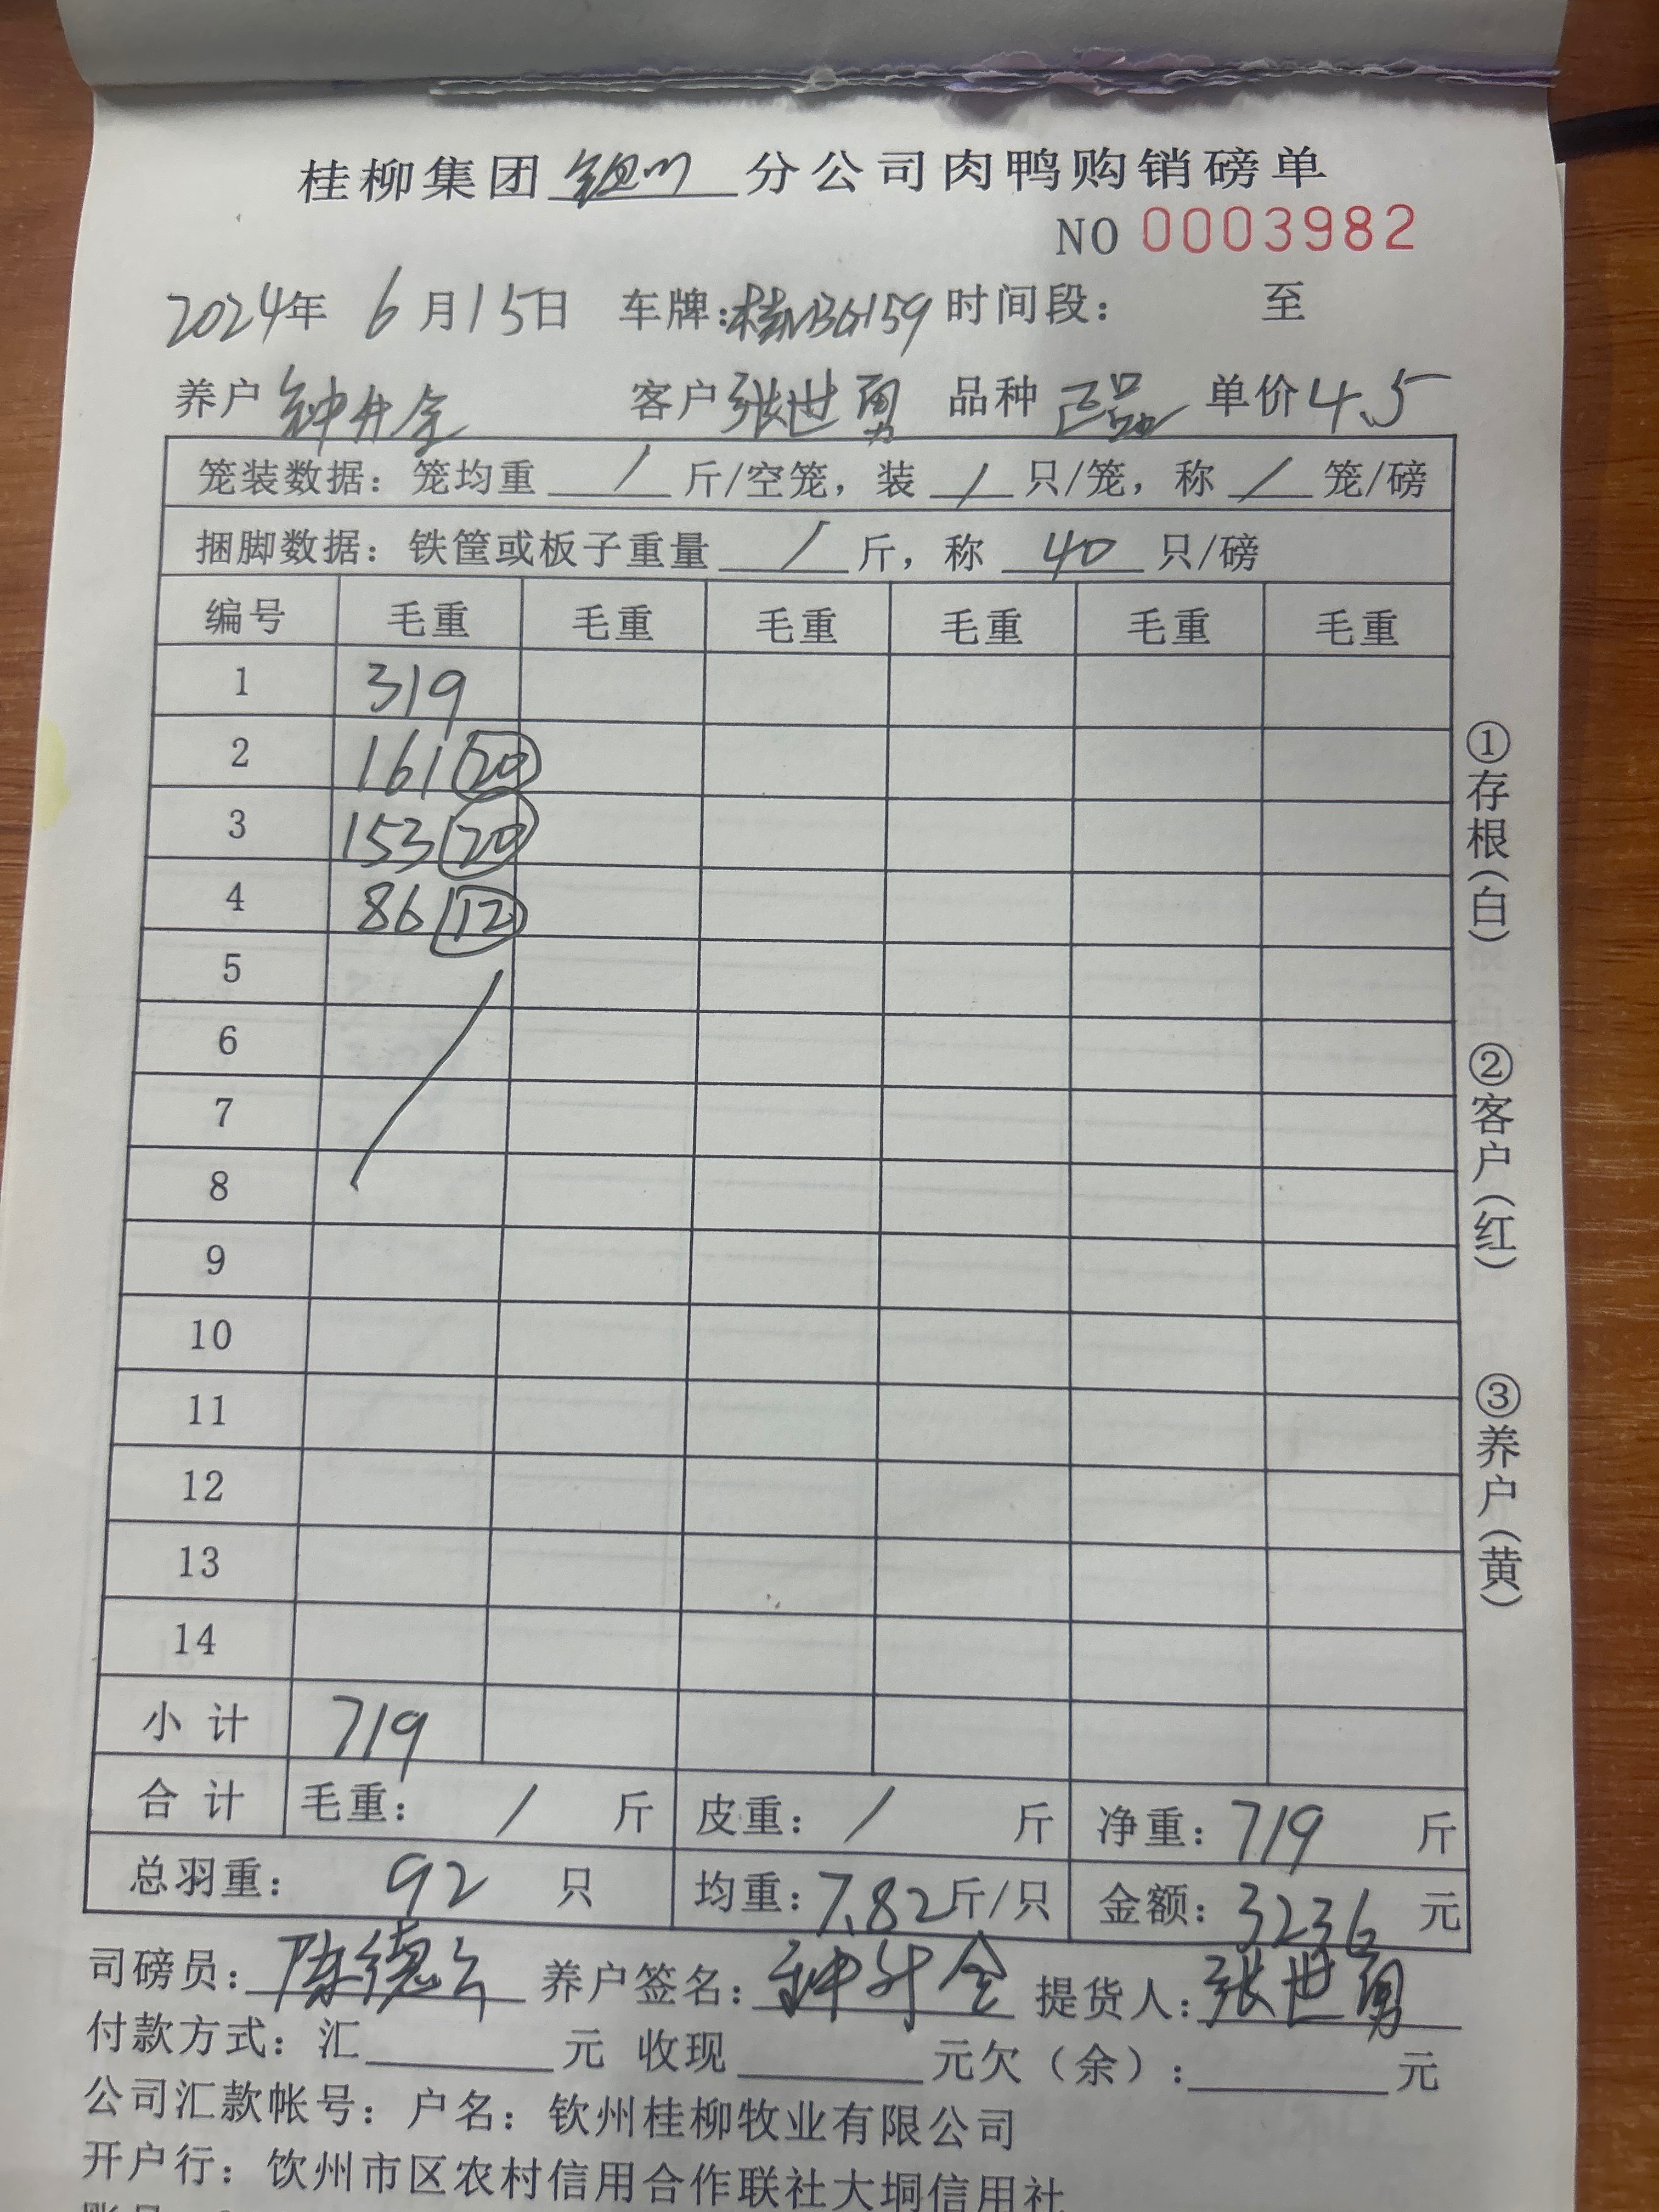 桂柳集团 钦州 分公司肉鸭购销磅单
NO 0003982
2024年 6月15日 车牌: 时间段： 至
养户 钟升全 客户 张世勇 品种 正品 单价 4.5
笼装数据：笼均重 / 斤/空笼，装 / 只/笼，称 / 笼/磅
捆脚数据：铁筐或板子重量 / 斤，称 40 只/磅
编号 毛重 毛重 毛重 毛重 毛重 毛重
1 319
2 161 20
3 153 20
4 86 12
5
6
7
8
9
10
11
12
13
14
小计 719
合计 毛重： / 斤 皮重： / 斤 净重：719 斤
总羽重： 92 只 均重：7.82斤/只 金额：3236 元
司磅员： 陈德云 养户签名： 钟升全 提货人：张世勇
付款方式：汇 元 收现 元欠（余）： 元
公司汇款帐号：户名：钦州桂柳牧业有限公司
开户行：饮州市区农村信用合作联社大垌信用社
①存根（白）
②客户（红）
③养户（黄）